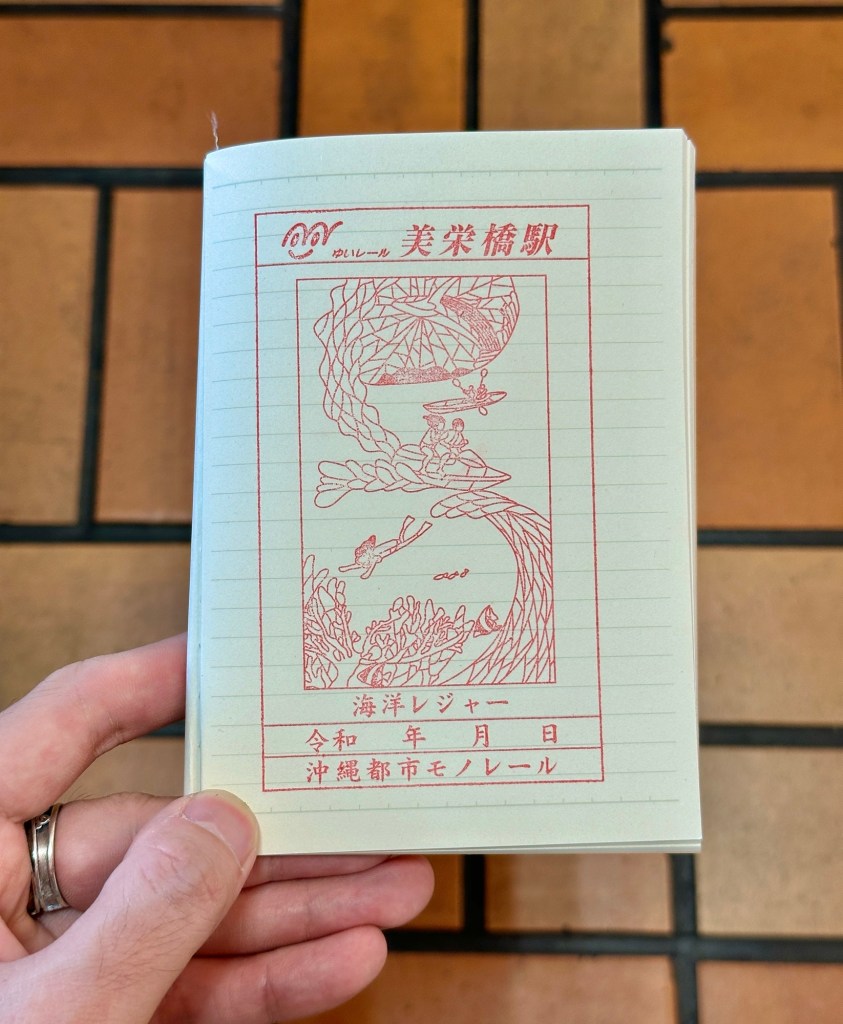 ゆいレール 美栄橋駅
海洋レジャー
令和 年 月 日
沖縄都市モノレール